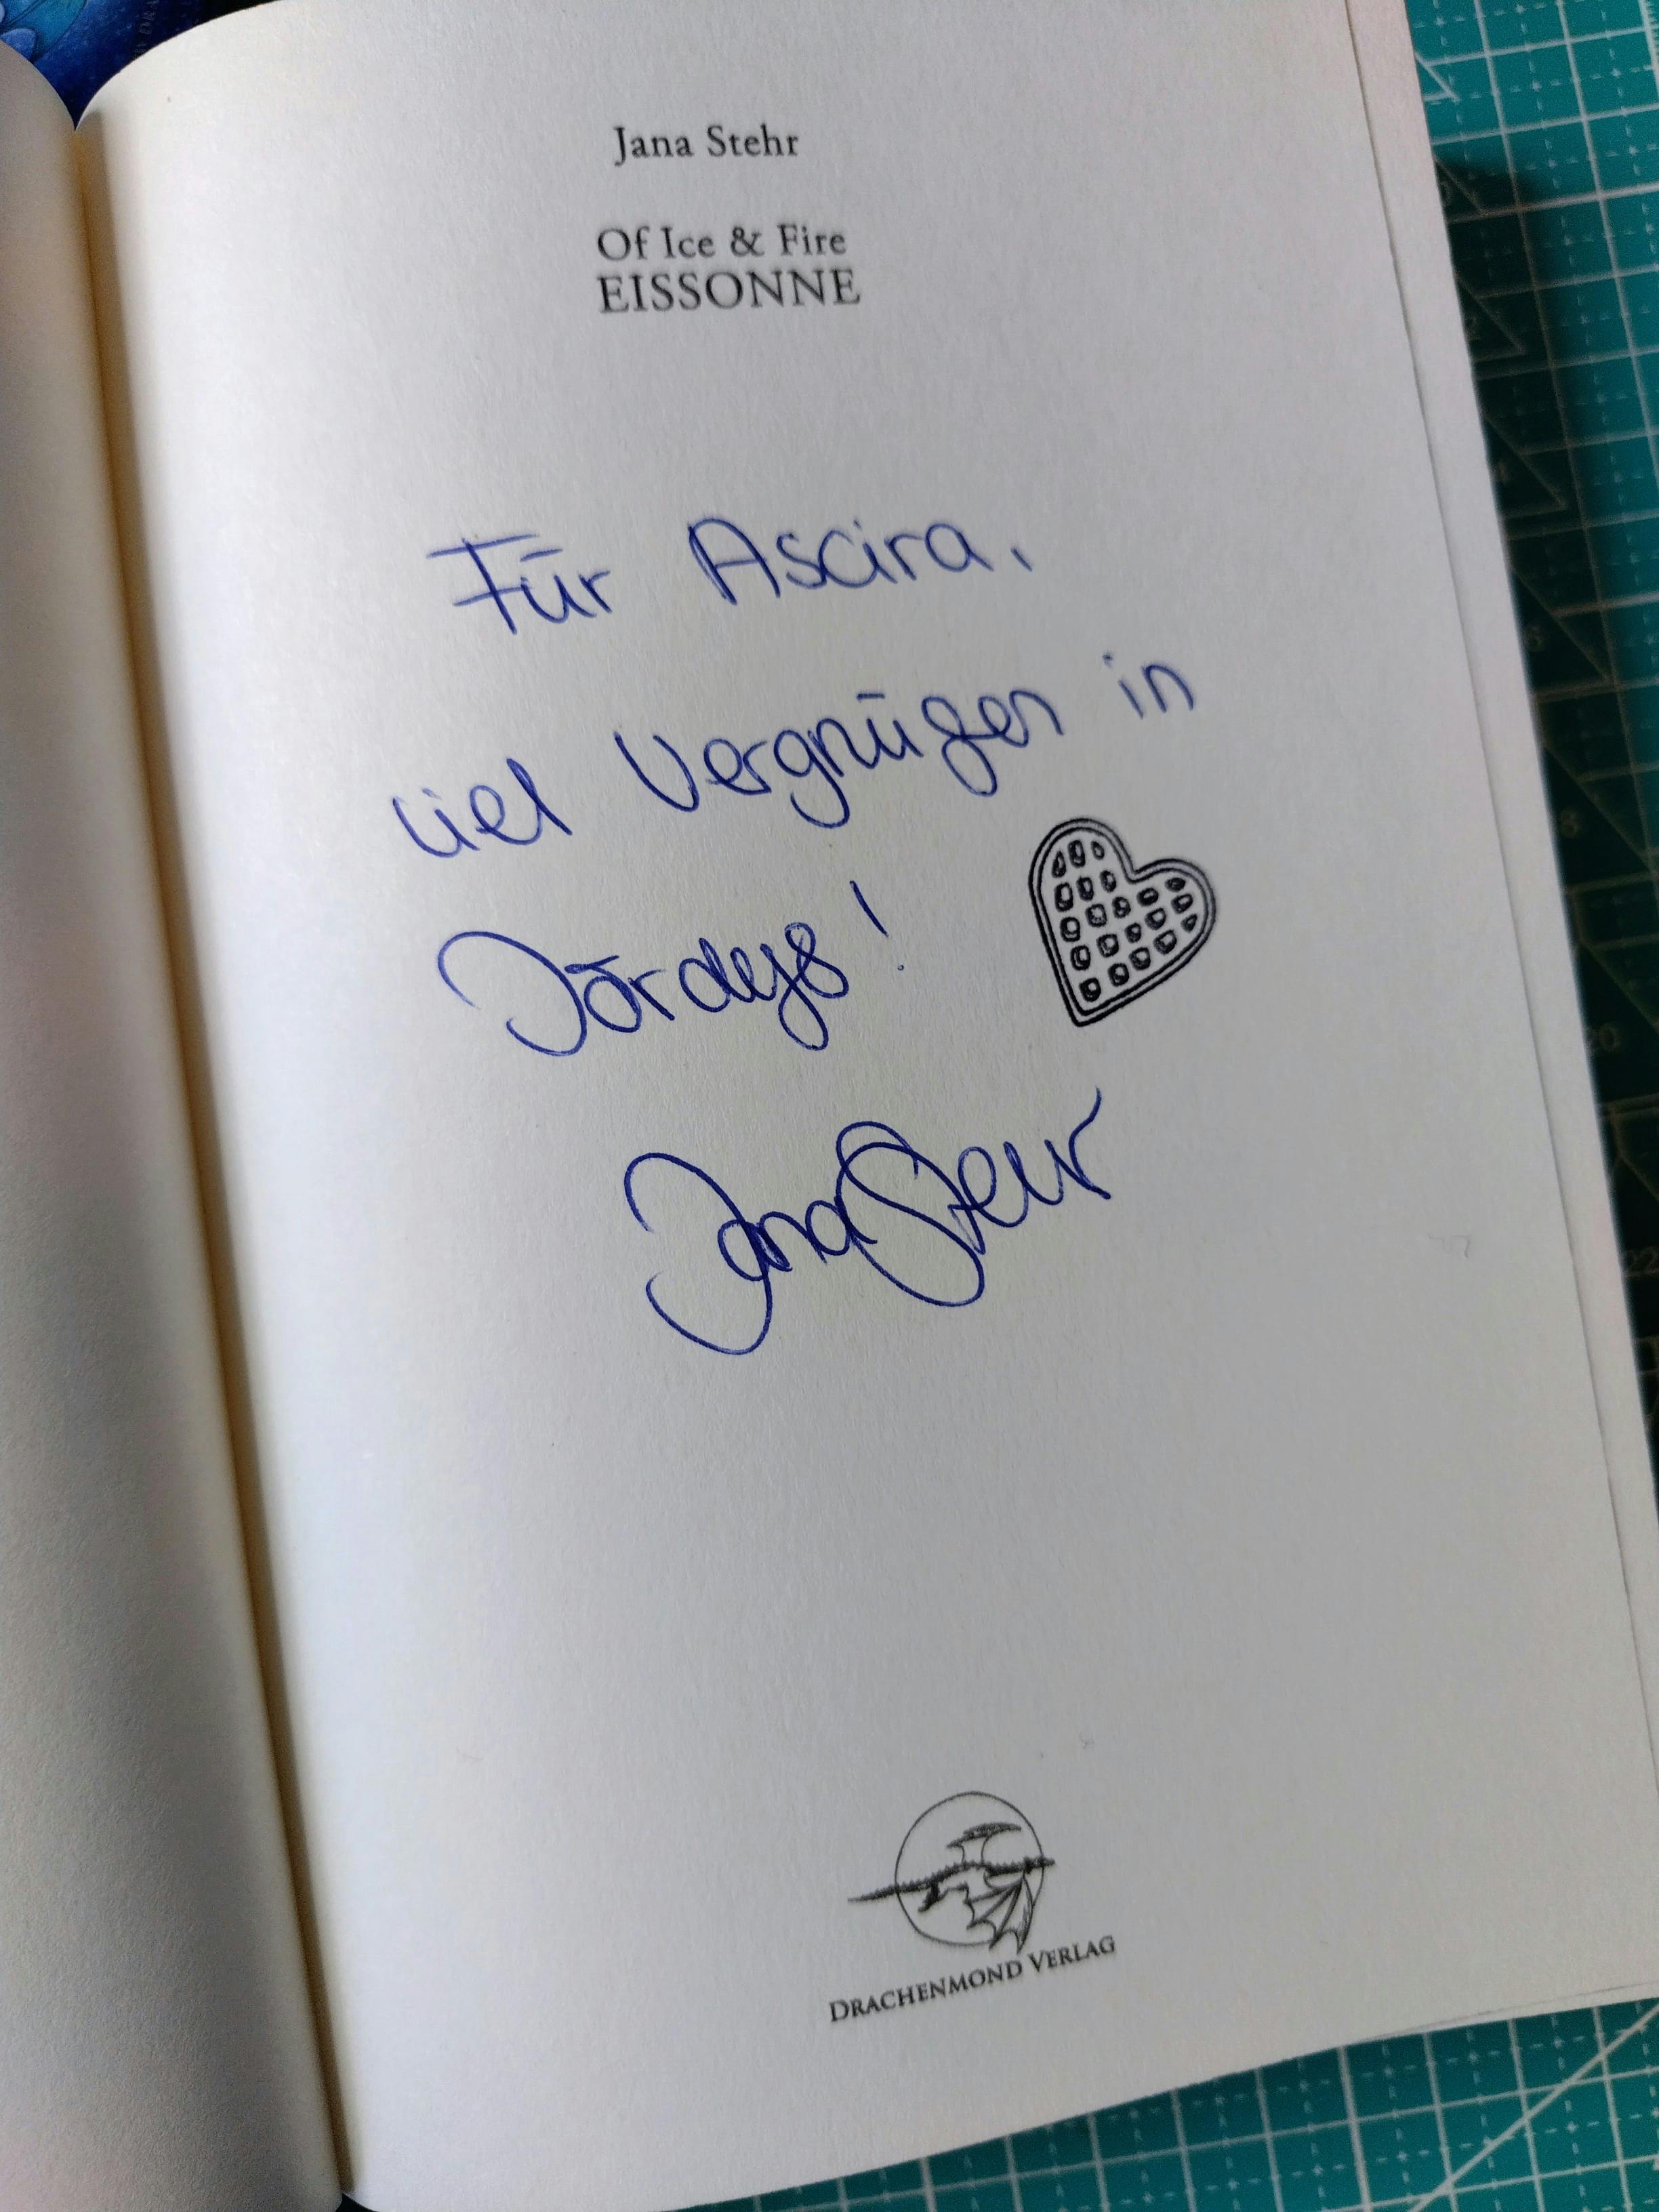 Jana Stehr
Of Ice & Fire
EISSONNE
Für Ascira,
viel Vergnügen in
Jördys!
Jana Stehr
DRACHENMOND VERLAG